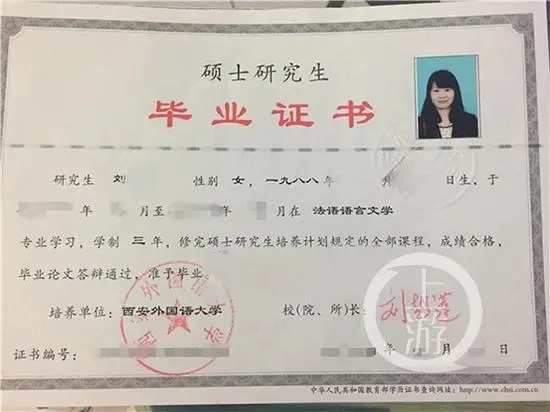 硕士研究生
毕业证书
研究生 刘 性别 女，一九八八年 月 日生，于
年 月至 年 月在 法语语言文学
专业学习，学制 三 年，修完硕士研究生培养计划规定的全部课程，成绩合格，
毕业论文答辩通过，准予毕业。
培养单位：西安外国语大学 校(院、所)长：
证书编号： 年 月 日
中华人民共和国教育部学历证书查询网址：http://www.chsi.com.cn
上游